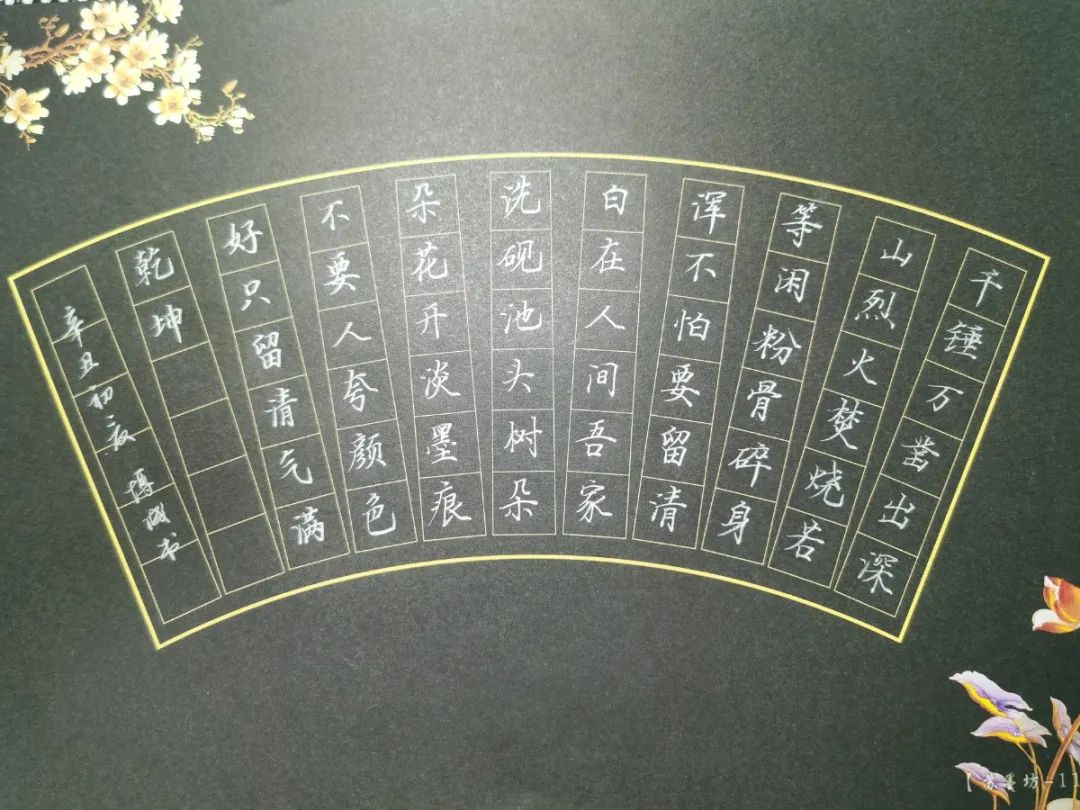 千锤万凿出深
山烈火焚烧若
等闲粉骨碎身
浑不怕要留清
白在人间吾家
洗砚池头树朵
朵花开淡墨痕
不要人夸颜色
好只留清气满
乾坤
辛丑初夏 博成书
坊-11